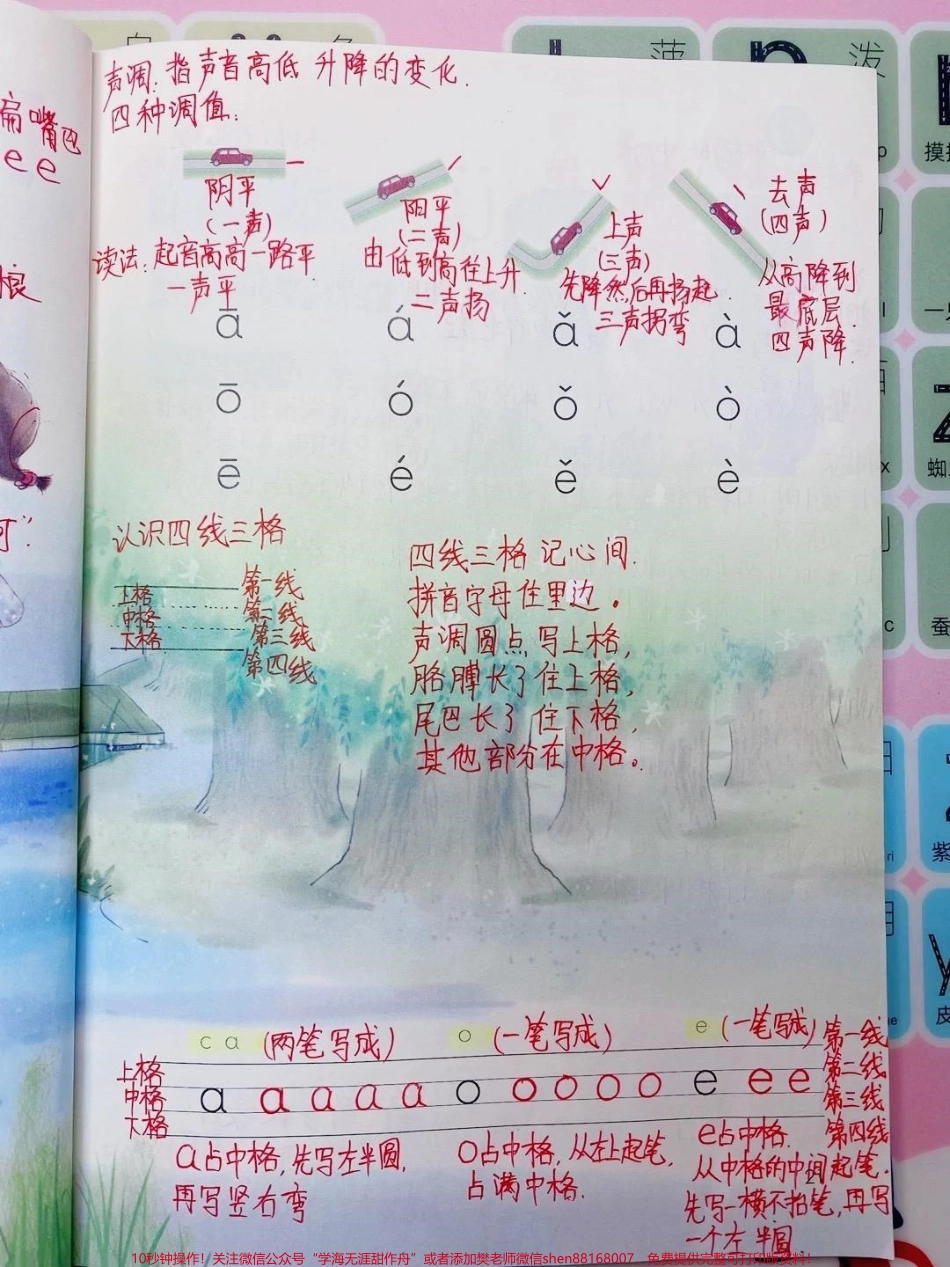 声调:指声音高低 升降的变化.
四种调值:
阴平
(一声)
阳平
(二声)
上声
(三声)
去声
(四声)
读法:起音高高一路平
一声平
由低到高往上升.
二声扬
先降然后再扬起.
三声拐弯
从高降到
最底层.
四声降.
ā á ǎ à
ō ó ǒ ò
ē é ě è
认识四线三格
上格 第一线
中格 第二线
下格 第三线
第四线
四线三格 记心间.
拼音字母住里边。
声调圆点写上格,
胳膊长了住上格,
尾巴长了住下格,
其他部分在中格。
c a (两笔写成) o (一笔写成) e (一笔写成)
上格
中格
下格
a a a a a o o o o o e e e
第一线
第二线
第三线
第四线
a占中格,先写左半圆,
再写竖右弯
o占中格,从左上起笔,
占满中格.
e占中格.
从中格的中间起笔.
先写一横不抬笔,再写
一个左半圆
扁嘴巴
e e
薄
泼
紫
10秒钟操作!关注微信公众号“学海无涯甜作舟”或者添加樊老师微信shen88168007,免费提供完整可打印版资料!